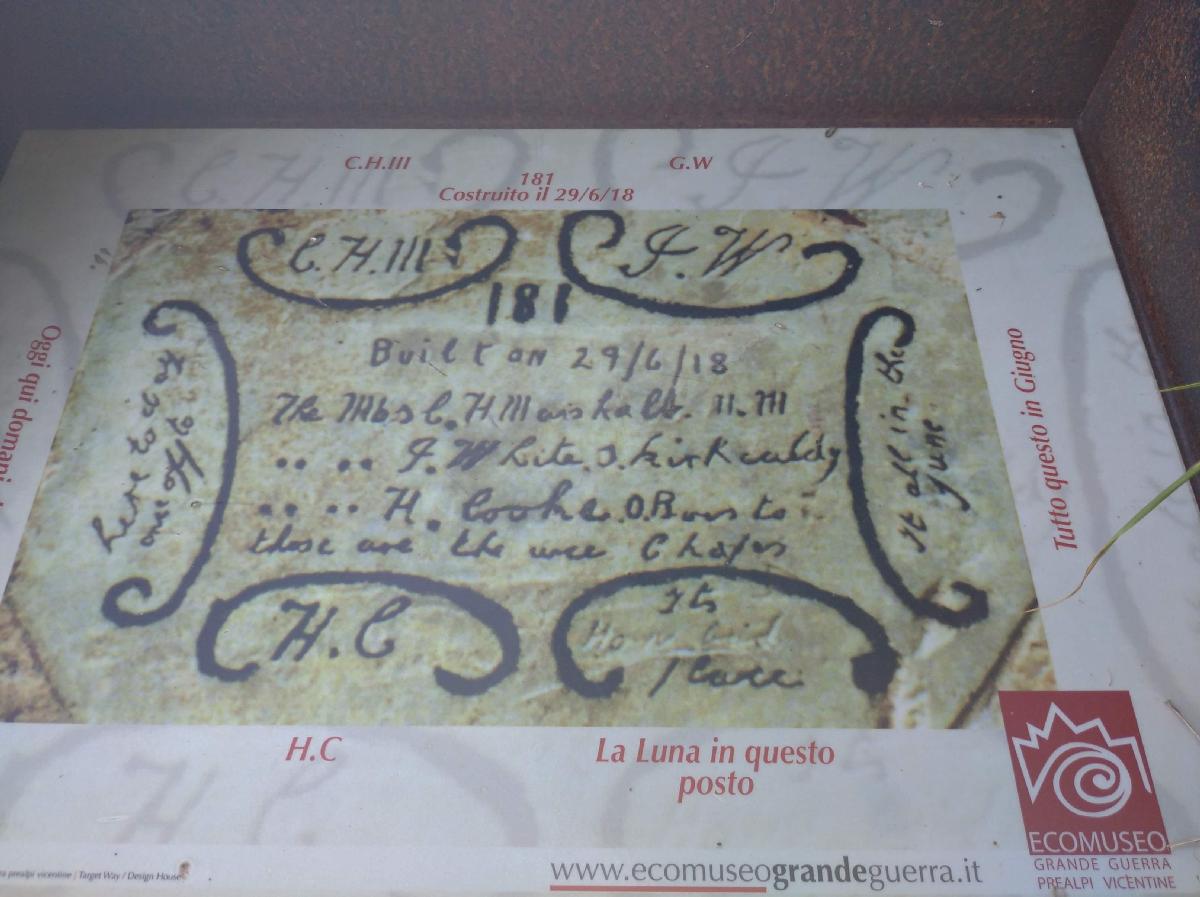 C.H.III G.W
181
Costruito il 29/6/18
C.H.III J.W
181
Built on 29/6/18
The Mbs C.H Marshall. 11.M
.. .. J.White. Kirkcaldy
.. .. H. Cooke.
those are the wee Chaps
here to day
It all in the
June
H.C
Its
place
Oggi qui domani
Tutto questo in Giugno
H.C
La Luna in questo
posto
prealpi vicentine | Target Way / Design House
www.ecomuseograndeguerra.it
ECOMUSEO
GRANDE GUERRA
PREALPI VICENTINE